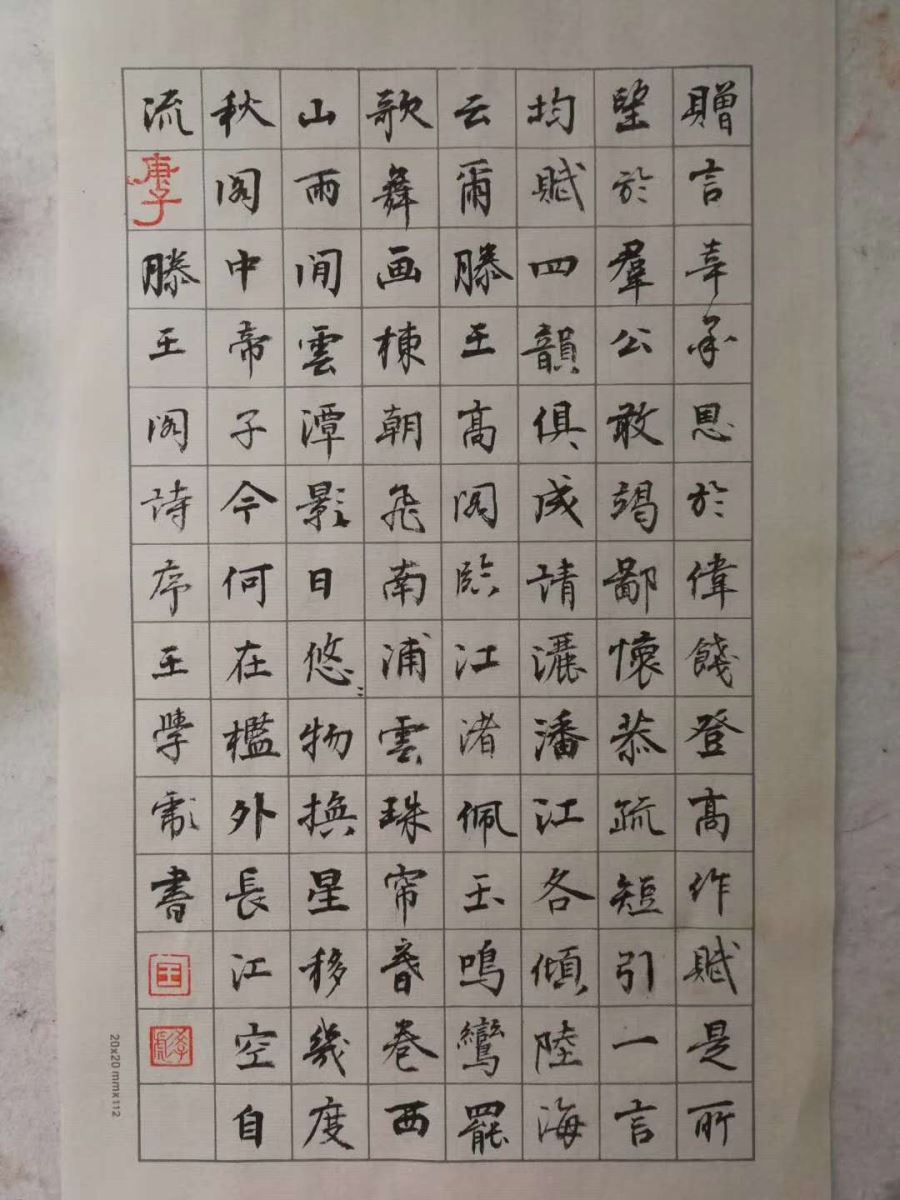 贈言幸承恩於偉餞登高作賦是所
望於羣公敢竭鄙懷恭疏短引一言
均賦四韻俱成請灑潘江各傾陸海
云爾滕王高閣臨江渚佩玉鳴鸞罷
歌舞画棟朝飛南浦雲珠帘暮卷西
山雨間雲潭影日悠〻物換星移幾度
秋閣中帝子今何在檻外長江空自
流庚子滕王閣詩序王學彪書王
20x20mmx112